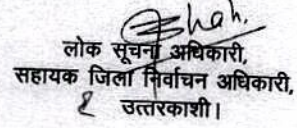 लोक सूचना अधिकारी,
सहायक जिला निर्वाचन अधिकारी,
उत्तरकाशी।